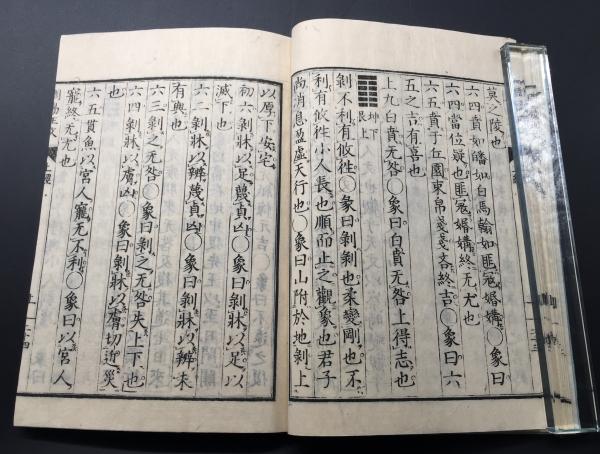 莫之陵也
六四賁如皤如白馬翰如匪寇婚媾○象曰
六四當位疑也匪寇婚媾終无尤也
六五賁于丘園束帛戔戔吝終吉○象曰六
五之吉有喜也
上九白賁无咎○象曰白賁无咎上得志也
坤下
艮上
剝不利有攸徃○彖曰剝剝也柔變剛也不
利有攸徃小人長也順而止之觀象也君子
尚消息盈虛天行也○象曰山附於地剝上
以厚下安宅
初六剝牀以足蔑貞凶○象曰剝牀以足以
滅下也
六二剝牀以辨蔑貞凶○象曰剝牀以辨未
有與也
六三剝之无咎○象曰剝之无咎失上下也
六四剝牀以膚凶○象曰剝牀以膚切近災
也
六五貫魚以宮人寵无不利○象曰以宮人
寵終无尤也